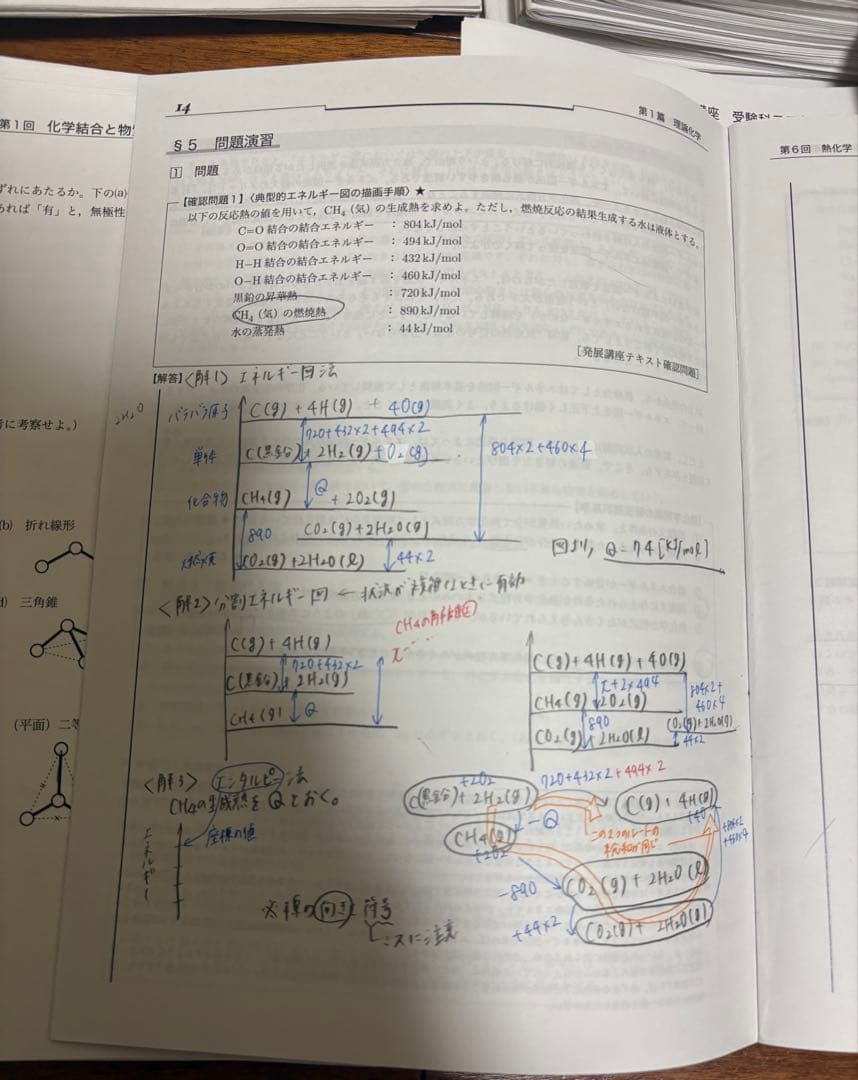 第1回 化学結合と物
ずれにあたるか。下の(a)
あれば「有」と，無極性
に考察せよ。）
(b) 折れ線形
三角錐
(平面) 二等
14
第1篇 理論化学
§5 問題演習
1 問題
【確認問題1】〈典型的エネルギー図の描画手順〉★
以下の反応熱の値を用いて，CH₄（気）の生成熱を求めよ。ただし，燃焼反応の結果生成する水は液体とする。
C=O 結合の結合エネルギー ：804 kJ/mol
O=O 結合の結合エネルギー ：494 kJ/mol
H−H 結合の結合エネルギー ：432 kJ/mol
O−H 結合の結合エネルギー ：460 kJ/mol
黒鉛の昇華熱 ：720 kJ/mol
CH₄（気）の燃焼熱 ：890 kJ/mol
水の蒸発熱 ：44 kJ/mol
［発展講座テキスト確認問題］
【解答】〈解1〉エネルギー図法
2H₂O
バラバラ原子 C(g) + 4H(g) + 4O(g)
720+432×2+494×2
804×2+460×4
単体 C(黒鉛) + 2H₂(g) + O₂(g)
Q
化合物 CH₄(g) + 2O₂(g)
890 CO₂(g)+2H₂O(g)
燃焼 CO₂(g)+2H₂O(l) 44×2
図より，Q=74[kJ/mol]
〈解2〉分割エネルギー図 ← 状況が複雑なときに有効
C(g) + 4H(g)
720+432×2
C(黒鉛) + 2H₂(g)
CH₄(g) Q
CH₄の解離
x
C(g)+4H(g)+4O(g)
x+2×494
804×2+
460×4
CH₄(g) 2O₂(g)
890 CO₂(g)+2H₂O(g)
CO₂(g)+2H₂O(l) 44×2
〈解3〉エンタルピー法
CH₄の生成熱をQとおく。
エネルギー
座標の値
※標の向きと符号
ミスに注意
+2O₂
720+432×2+494×2
C(黒鉛)+2H₂(g)
C(g)+4H(g)
+4O
−Q
CH₄(g)
+2O₂
この2つのルートの
総和が同じ
+460×4
−890
CO₂(g)+2H₂O(l)
+44×2
CO₂(g)+2H₂O(g)
講座 受験科
第6回 熱化学